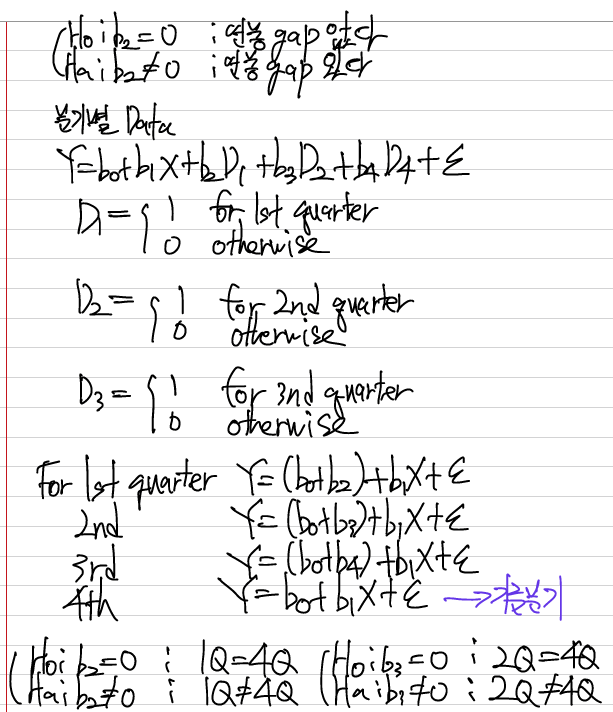 H₀ : b₂ = 0 ; 연봉 gap 없다
Hₐ : b₂ ≠ 0 ; 연봉 gap 있다
분기별 Data
Y = b₀ + b₁X + b₂D₁ + b₃D₂ + b₄D₄ + ε
D₁ = { 1 for 1st quarter
0 otherwise
D₂ = { 1 for 2nd quarter
0 otherwise
D₃ = { 1 for 3nd quarter
0 otherwise
For 1st quarter Y = (b₀+b₂) + b₁X + ε
2nd Y = (b₀+b₃) + b₁X + ε
3rd Y = (b₀+b₄) + b₁X + ε
4th Y = b₀ + b₁X + ε → 기준분기
( H₀ : b₂ = 0 ; 1Q = 4Q ( H₀ : b₃ = 0 ; 2Q = 4Q
Hₐ : b₂ ≠ 0 ; 1Q ≠ 4Q Hₐ : b₃ ≠ 0 ; 2Q ≠ 4Q